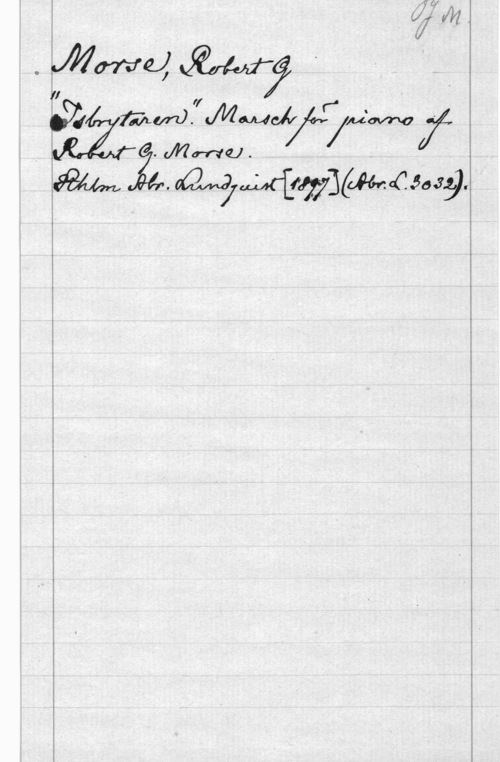 Morse, Robert G
"Isbrytaren". Marsch för piano af
Robert G. Morse.
Sthlm Abr. Lundquist [1897] (Abr. L. 3032).